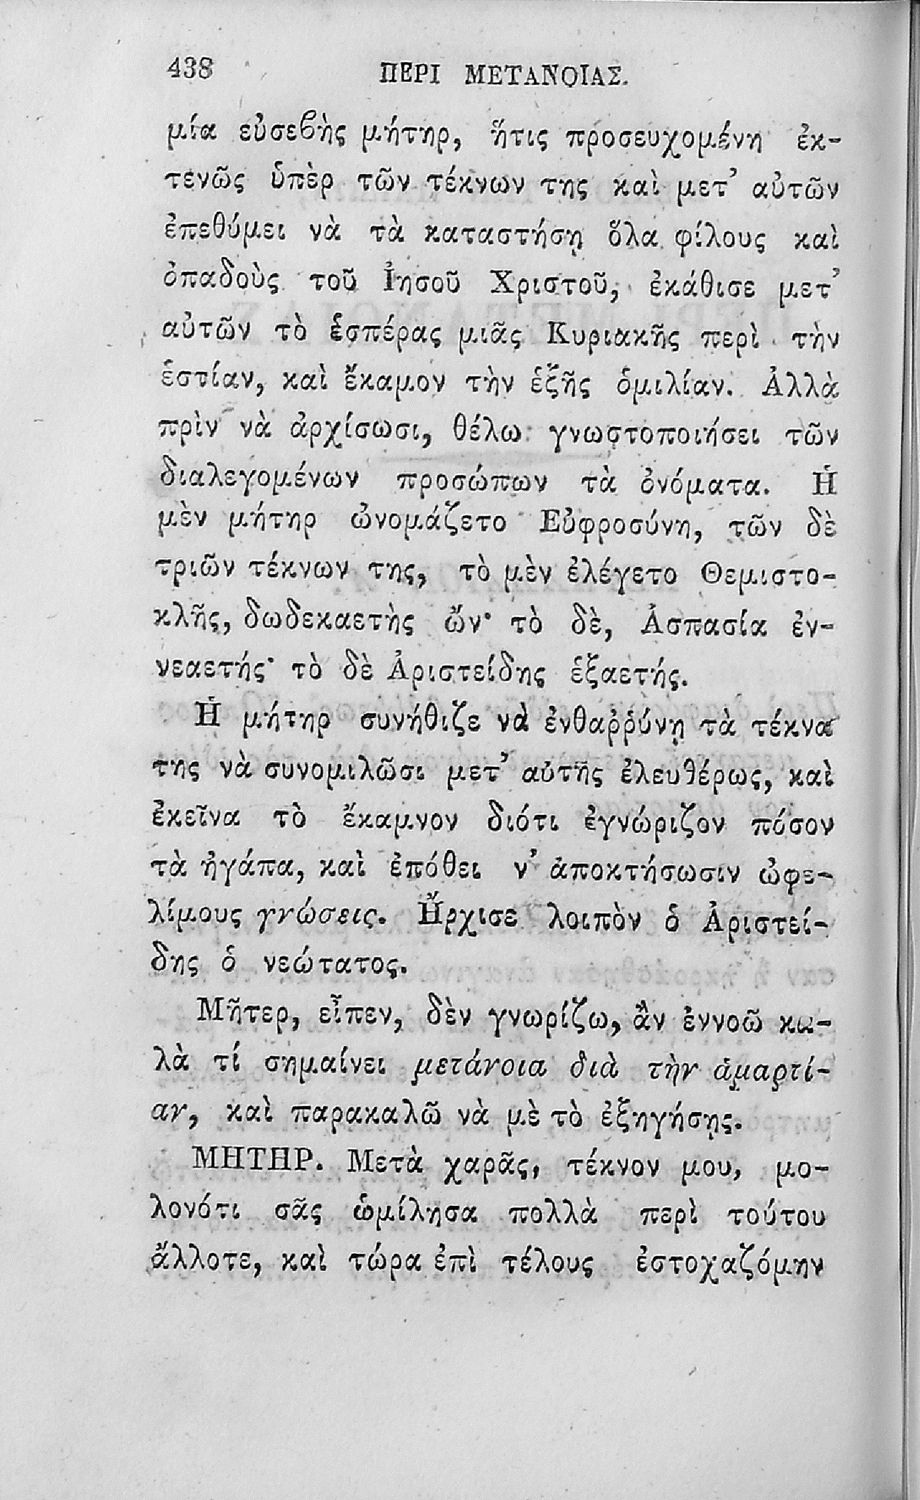 438 ΠΕΡΙ ΜΕΤΑΝΟΙΑΣ.
μία εὐσεβὴς μήτηρ, ἥτις προσευχομένη ἐκ-
τενῶς ὑπὲρ τῶν τέκνων της καὶ μετ’ αὐτῶν
ἐπεθύμει νὰ τὰ καταστήσῃ ὅλα φίλους καὶ
ὀπαδοὺς τοῦ Ἰησοῦ Χριστοῦ, ἐκάθισε μετ’
αὐτῶν τὸ ἑσπέρας μιᾶς Κυριακῆς περὶ τὴν
ἑστίαν, καὶ ἔκαμον τὴν ἑξῆς ὁμιλίαν. Ἀλλὰ
πρὶν νὰ ἀρχίσωσι, θέλω γνωστοποιήσει τῶν
διαλεγομένων προσώπων τὰ ὀνόματα. Ἡ
μὲν μήτηρ ὠνομάζετο Εὐφροσύνη, τῶν δὲ
τριῶν τέκνων της, τὸ μὲν ἐλέγετο Θεμιστο-
κλῆς, δωδεκαετὴς ὤν· τὸ δὲ, Ἀσπασία ἐν-
νεαετής· τὸ δὲ Ἀριστείδης ἑξαετής.
Ἡ μήτηρ συνήθιζε νὰ ἐνθαῤῥύνῃ τὰ τέκνα
της νὰ συνομιλῶσι μετ’ αὐτῆς ἐλευθέρως, καὶ
ἐκεῖνα τὸ ἔκαμνον διότι ἐγνώριζον πόσον
τὰ ἠγάπα, καὶ ἐπόθει ν’ ἀποκτήσωσιν ὠφε-
λίμους γνώσεις. Ἤρχισε λοιπὸν ὁ Ἀριστεί-
δης ὁ νεώτατος.
Μῆτερ, εἶπεν, δὲν γνωρίζω, ἂν ἐννοῶ κα-
λὰ τί σημαίνει μετάνοια διὰ τὴν ἁμαρτί-
αν, καὶ παρακαλῶ νὰ μὲ τὸ ἐξηγήσῃς.
ΜΗΤΗΡ. Μετὰ χαρᾶς, τέκνον μου, μο-
λονότι σᾶς ὡμίλησα πολλὰ περὶ τούτου
ἄλλοτε, καὶ τώρα ἐπὶ τέλους ἐστοχαζόμην